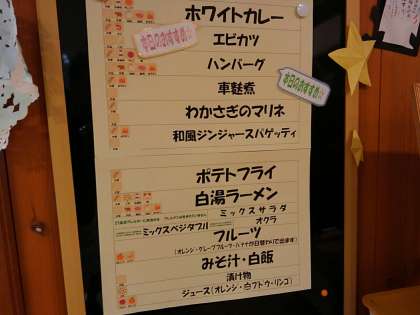 ホワイトカレー
本日のおすすめ☆
エビカツ
ハンバーグ
本日のおすすめ☆
車麩煮
わかさぎのマリネ
和風ジンジャースパゲッティ
ポテトフライ
白湯ラーメン
ミックスサラダ
ミックスベジタブル
オクラ
フルーツ
(オレンジ・グレープフルーツ・バナナが日替わりで出ます)
みそ汁・白飯
漬け物
ジュース(オレンジ・白ブドウ・リンゴ)